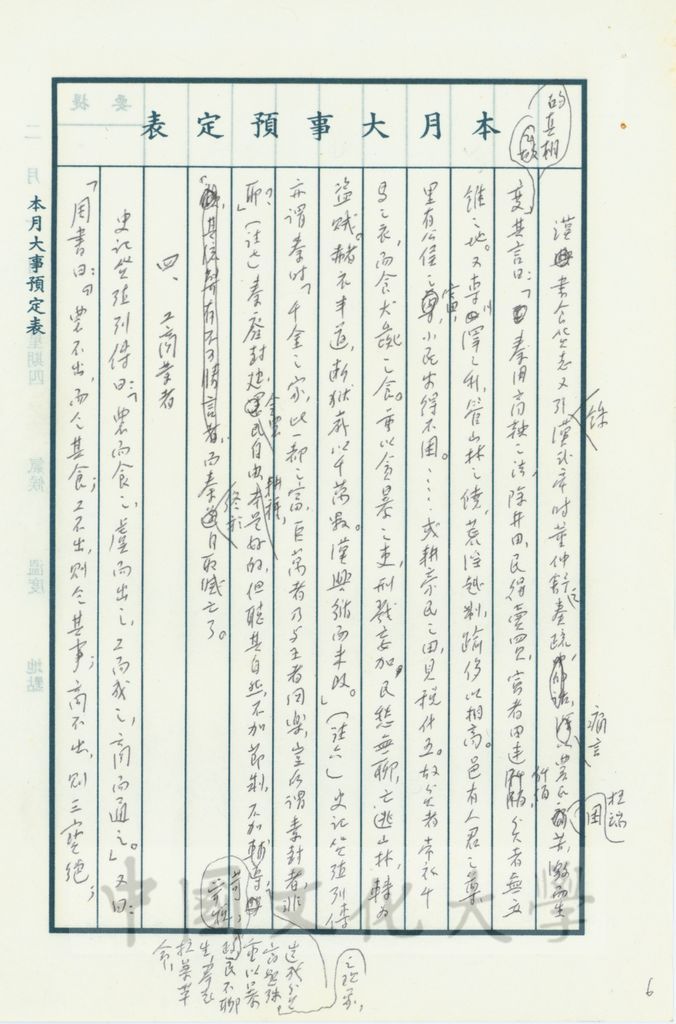 本月大事預定表
的真相
漢書食貨志又引漢武帝時董仲舒之奏疏,農民
度其言曰:「秦用商鞅之法,除井田,民得賣買,富者田連阡陌,貧者無立
錐之地。又專川澤之利,管山林之饒,荒淫越制,踰侈以相高。邑有人君之尊
里有公侯之富,小民安得不困。……或耕豪民之田,見稅什五。故貧者常衣牛
馬之衣,而食犬彘之食。重以貪暴之吏,刑戮妄加,民愁無聊,亡逃山林,轉為
盜賊。赭衣半道,斷獄歲以千萬數。漢興循而未改。」(註六)史記貨殖列傳
亦謂秦時「千金之家,比一都之富,巨萬者乃與王者同樂,豈所謂素封者,非
耶?」(註七)秦廢封建,民自由本是好的,但聽其自然,不加節制,不加輔導
其流弊有不可勝言者,而秦終於自取滅亡了。
四、工商業者
史記貨殖列傳曰:「農而食之,虞而出之,工而成之,商而通之。」又曰:
「周書曰:『農不出,則乏其食;工不出,則乏其事;商不出,則三寶絕;
痛言
阡陌
耕種,
造成貧
富懸殊
重以暴
政,民不聊
生,
本月大事預定表
提要
二月
星期四
氣候
溫度
地點
中國文化大學
6